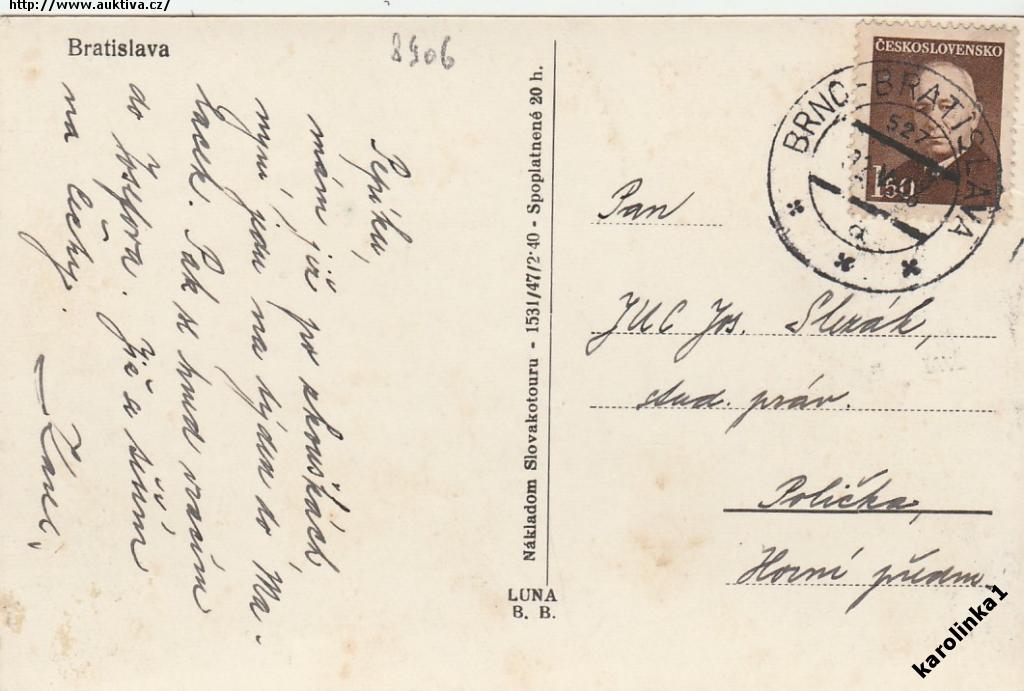 http://www.auktiva.cz/
Bratislava
8906
Pepíku,
mám již po zkouškách,
nyní jedu na týden do Ma-
lacek. Pak se hned vracím
do Josefova. Již a těším
na Čechy.
Nákladom Slovakotouru - 1531/47/2·40 - Spoplatnené 20 h.
LUNA
B. B.
ČESKOSLOVENSKO
1.60
BRNO-BRATISLAVA
527
Pan
JUC Jos. Slezák,
stud. práv.
Polička,
Horní předm.
karolinka1